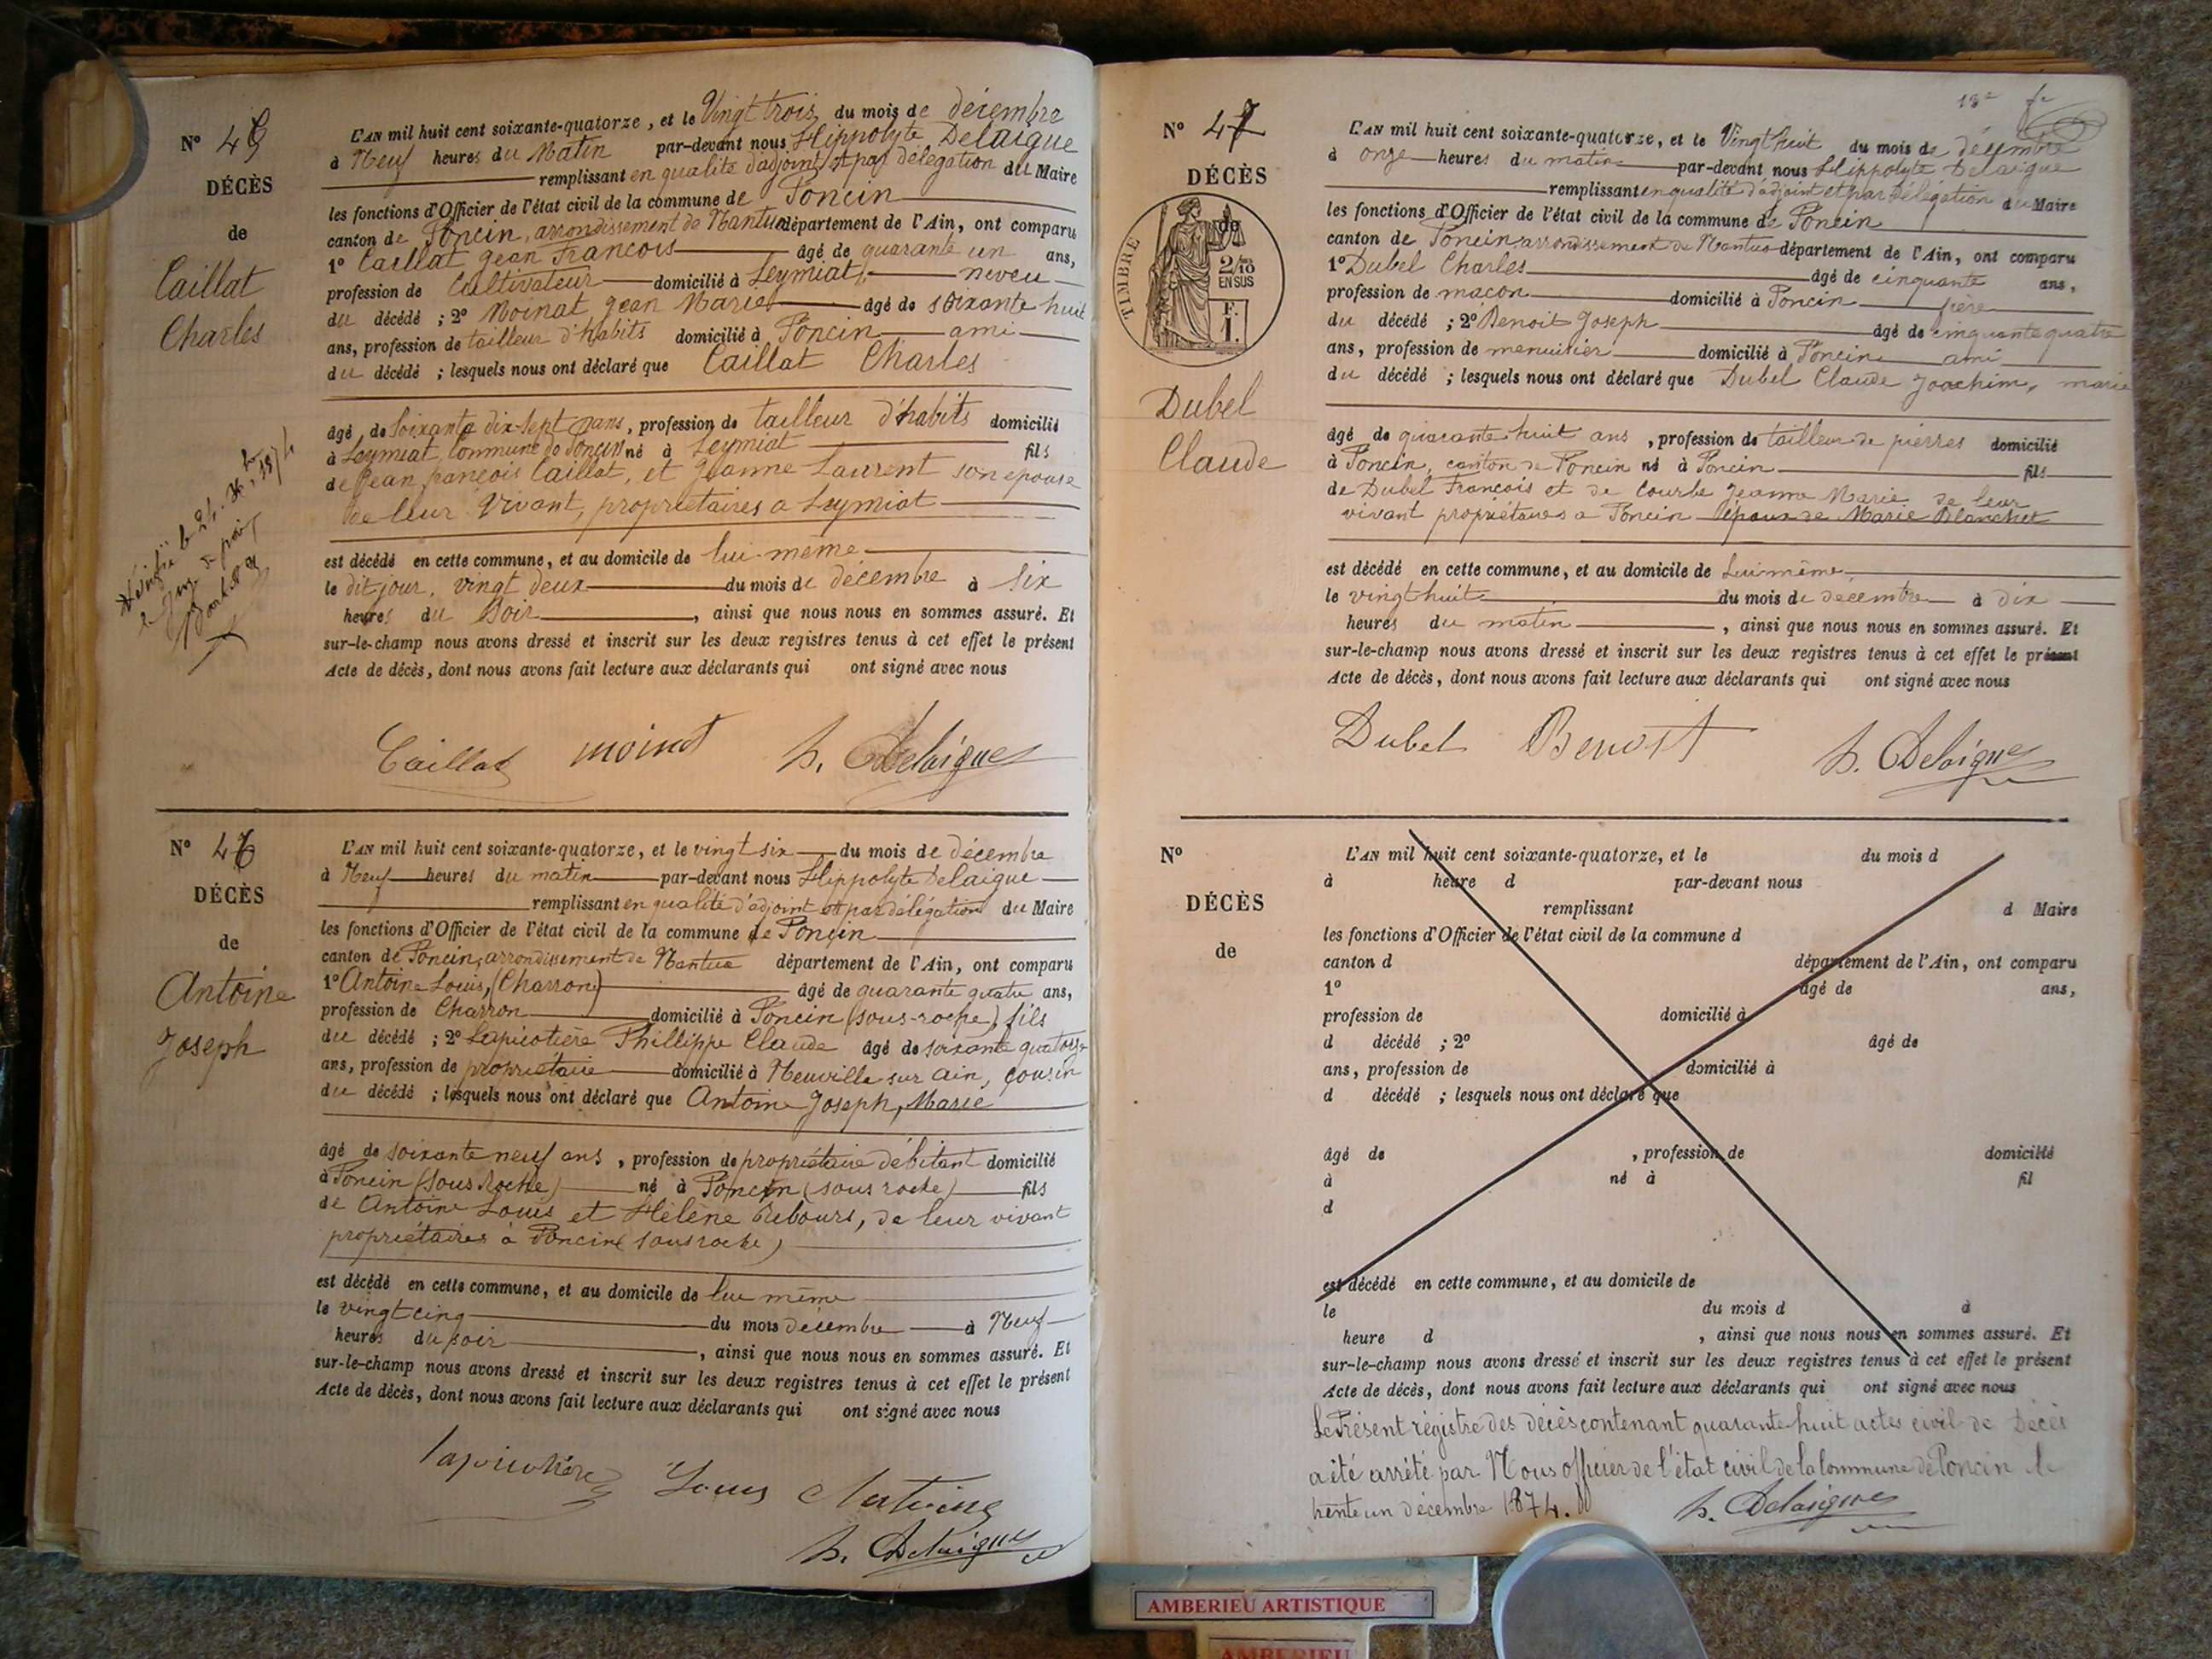 Nº 46
DÉCÈS
de
Caillat
Charles
L'AN mil huit cent soixante-quatorze, et le Vingt trois du mois de décembre
à Neuf heures du Matin par-devant nous Hippolyte Delaigue
remplissant en qualité d'adjoint et par délégation du Maire
les fonctions d'Officier de l'état civil de la commune de Poncin
canton de Poncin, arrondissement de Nantua département de l'Ain, ont comparu
1º Caillat Jean François âgé de quarante un ans,
profession de Cultivateur domicilié à Leymiat, neveu
du décédé ; 2º Moinat Jean Marie âgé de soixante huit
ans, profession de tailleur d'habits domicilié à Poncin ami
du décédé ; lesquels nous ont déclaré que Caillat Charles
âgé de soixante dix-sept ans, profession de tailleur d'habits domicilié
à Leymiat, Commune de Poncin né à Leymiat fils
de Jean françois Caillat, et Jeanne Laurent son epouse
de leur Vivant, propriétaires a Leymiat
est décédé en cette commune, et au domicile de lui-même
le dit jour, vingt deux du mois de décembre à six
heures du Soir, ainsi que nous nous en sommes assuré. Et
sur-le-champ nous avons dressé et inscrit sur les deux registres tenus à cet effet le présent
Acte de décès, dont nous avons fait lecture aux déclarants qui ont signé avec nous
Caillat moinat h. Delaigue
Nº 47
DÉCÈS
de
Antoine
Joseph
L'AN mil huit cent soixante-quatorze, et le vingt six du mois de décembre
à Neuf heures du matin par-devant nous Hippolyte Delaigue
remplissant en qualité d'adjoint et par délégation du Maire
les fonctions d'Officier de l'état civil de la commune de Poncin
canton de Poncin, arrondissement de Nantua département de l'Ain, ont comparu
1º Antoine Louis, (Charron) âgé de quarante quatre ans,
profession de Charron domicilié à Poncin (sous-roche), fils
du décédé ; 2º Lapicotière Phillippe Claude âgé de soixante quatorze
ans, profession de propriétaire domicilié à Neuville sur ain, cousin
du décédé ; lesquels nous ont déclaré que Antoine Joseph, Marie
âgé de soixante neuf ans, profession de propriétaire débitant domicilié
à Poncin (sous Roche) né à Poncin (sous roche) fils
de Antoine Louis et Hélène Rebours, de leur vivant
propriétaires à Poncin (sous roche)
est décédé en cette commune, et au domicile de lui même
le vingt cinq du mois décembre à Neuf
heures du soir, ainsi que nous nous en sommes assuré. Et
sur-le-champ nous avons dressé et inscrit sur les deux registres tenus à cet effet le présent
Acte de décès, dont nous avons fait lecture aux déclarants qui ont signé avec nous
lapicotière Louis Antoine
h. Delaigue
Nº 47
DÉCÈS
de
TIMBRE
2/10
EN SUS
F.
1.
Dubel
Claude
L'AN mil huit cent soixante-quatorze, et le Vingt huit du mois de décembre
à onze heures du matin par-devant nous Hippolyte Delaigue
remplissant en qualité d'adjoint et par Délégation du Maire
les fonctions d'Officier de l'état civil de la commune de Poncin
canton de Poncin arrondissement de Nantua département de l'Ain, ont comparu
1º Dubel Charles âgé de cinquante ans,
profession de maçon domicilié à Poncin frère
du décédé ; 2º Benoit Joseph âgé de cinquante quatre
ans, profession de menuisier domicilié à Poncin ami
du décédé ; lesquels nous ont déclaré que Dubel Claude Joachim, marie
âgé de quarante huit ans, profession de tailleur de pierres domicilié
à Poncin, canton de Poncin né à Poncin fils
de Dubel François et de Courbe Jeanne Marie de leur
vivant propriétaires a Poncin époux de Marie Blanchet
est décédé en cette commune, et au domicile de Lui même
le vingt huit du mois de décembre à dix
heures du matin, ainsi que nous nous en sommes assuré. Et
sur-le-champ nous avons dressé et inscrit sur les deux registres tenus à cet effet le présent
Acte de décès, dont nous avons fait lecture aux déclarants qui ont signé avec nous
Dubel Benoit h. Delaigue
Nº
DÉCÈS
de
L'AN mil huit cent soixante-quatorze, et le du mois d
à heure d par-devant nous
remplissant d Maire
les fonctions d'Officier de l'état civil de la commune d
canton d département de l'Ain, ont comparu
1º âgé de ans,
profession de domicilié à
d décédé ; 2º âgé de
ans, profession de domicilié à
d décédé ; lesquels nous ont déclaré que
âgé de , profession de domicilié
à né à fil
d
est décédé en cette commune, et au domicile de
le du mois d à
heure d , ainsi que nous nous en sommes assuré. Et
sur-le-champ nous avons dressé et inscrit sur les deux registres tenus à cet effet le présent
Acte de décès, dont nous avons fait lecture aux déclarants qui ont signé avec nous
Le Présent régistre des décès contenant quarante huit actes civil de Décès
a été arrêté par Nous officier de l'état civil de la Commune de Poncin le
trente un décembre 1874.
h. Delaigue
AMBERIEU ARTISTIQUE
AMBERIEU